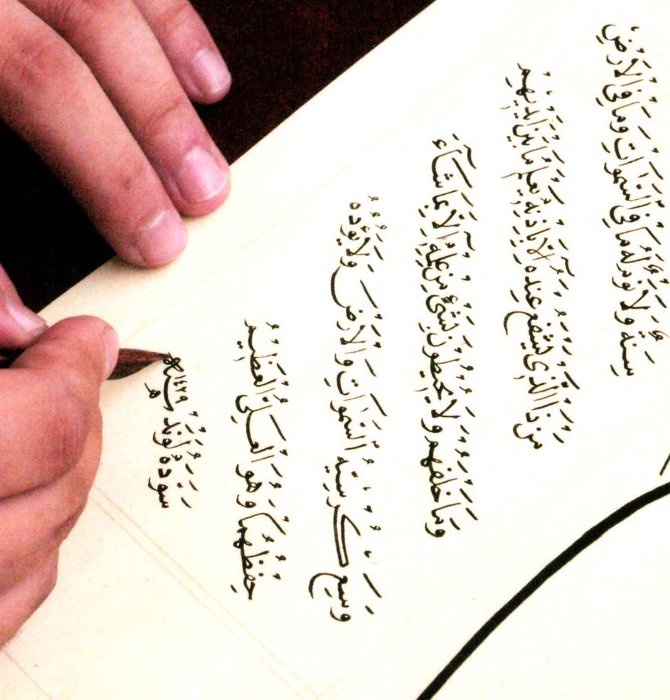 سِنَةٌ وَلَا نَوْمٌ لَهُ مَا فِى السَّمٰوَاتِ وَمَا فِى الْاَرْضِ
مَنْ ذَا الَّذِى يَشْفَعُ عِنْدَهُ اِلَّا بِاِذْنِهِ يَعْلَمُ مَا بَيْنَ اَيْدِيهِمْ
وَمَا خَلْفَهُمْ وَلَا يُحِيطُونَ بِشَىْءٍ مِنْ عِلْمِهِ اِلَّا بِمَا شَآءَ
وَسِعَ كُرْسِيُّهُ السَّمٰوَاتِ وَالْاَرْضَ وَلَا يَؤُدُهُ
حِفْظُهُمَا وَهُوَ الْعَلِىُّ الْعَظِيمُ
سَوَّدَهُ لَوَنْد ١٤٢٩